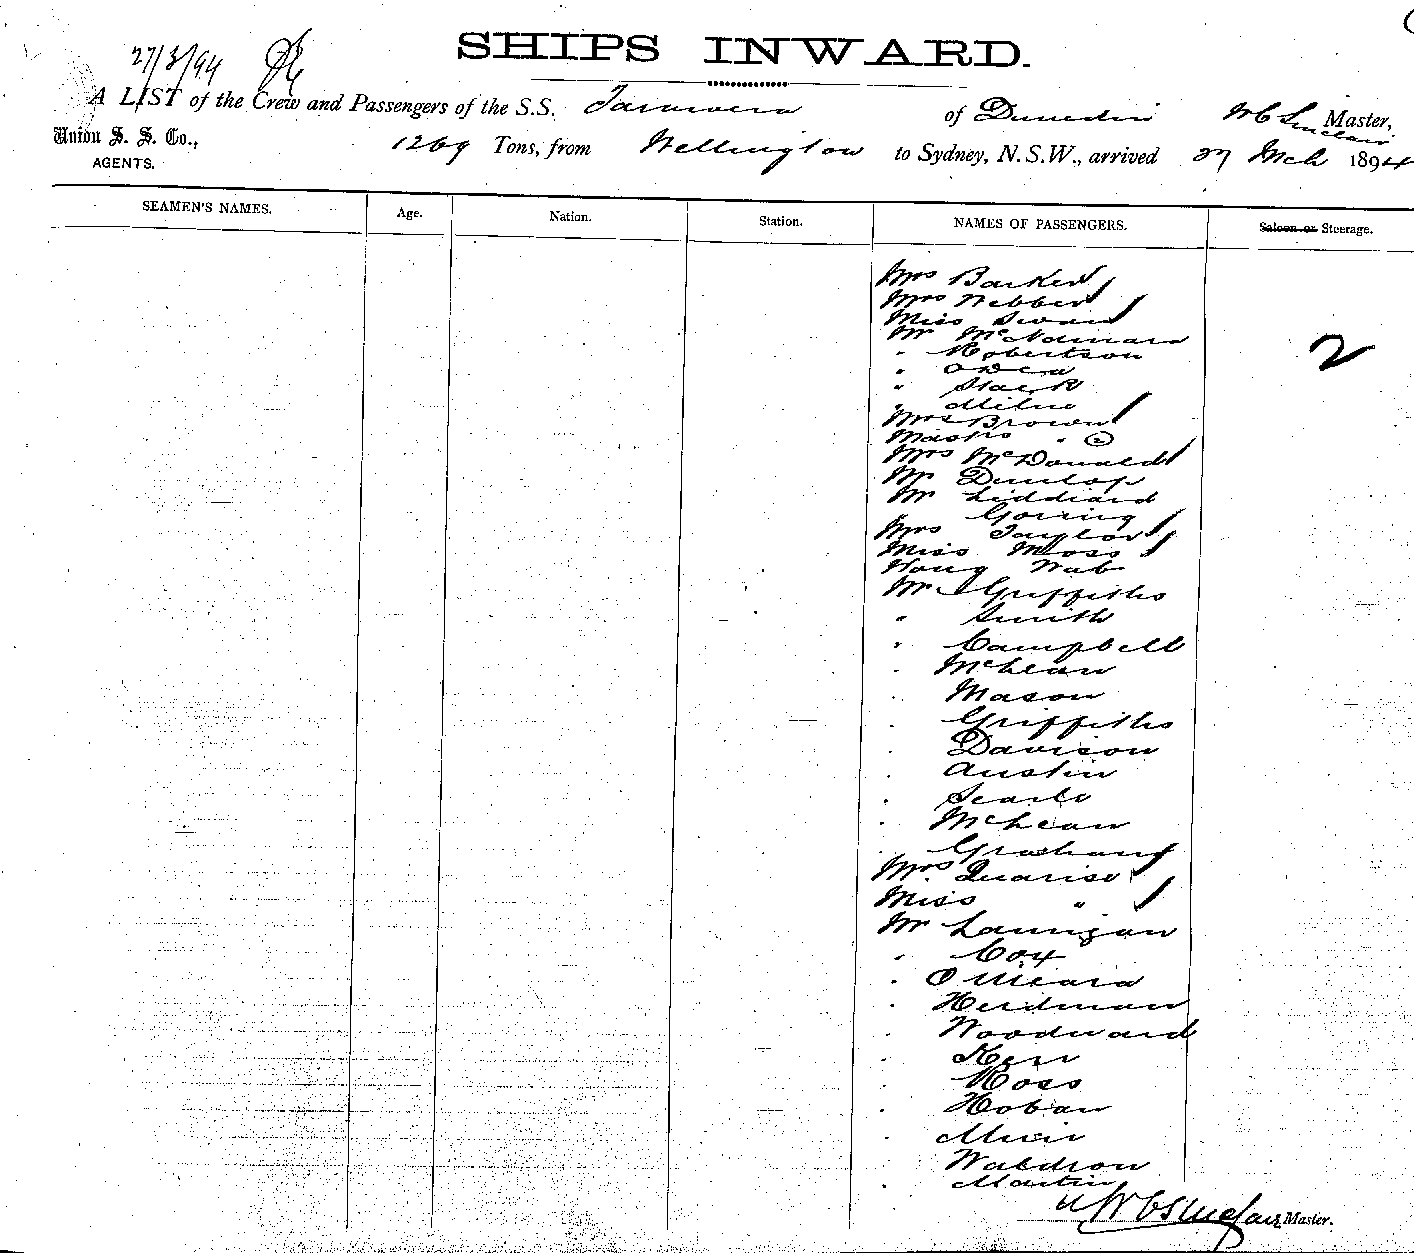 SHIPS INWARD.
27/3/94
A LIST of the Crew and Passengers of the S.S. Tarawera of Dunedin W C Sinclair Master,
Union S. S. Co.,
AGENTS.
1269 Tons, from Wellington to Sydney, N.S.W., arrived 27 Mch 1894
SEAMEN'S NAMES. Age. Nation. Station. NAMES OF PASSENGERS. Saloon or Steerage.
Mrs Barker
Mrs Webber
Miss Swan
Mr McNamara
" Robertson
" Owen
" Stack
" Milne
Mrs Brown
Mastrs " 2
Mrs McDonald
Mr Dunlop
Mr Liddiard
" Goring
Mrs Taylor
Miss Moss
Wong Wab
Mr Griffiths
" Smith
" Campbell
" McLean
" Mason
" Griffiths
" Davison
" Austin
" Searle
" McLean
" Graham
Mrs
Miss "
Mr Lannigan
" Cox
" O'Meara
" Herdman
" Woodward
" Kerr
" Ross
" Hoban
" Muir
" Waldron
" Martin
2
W C Sinclair Master.